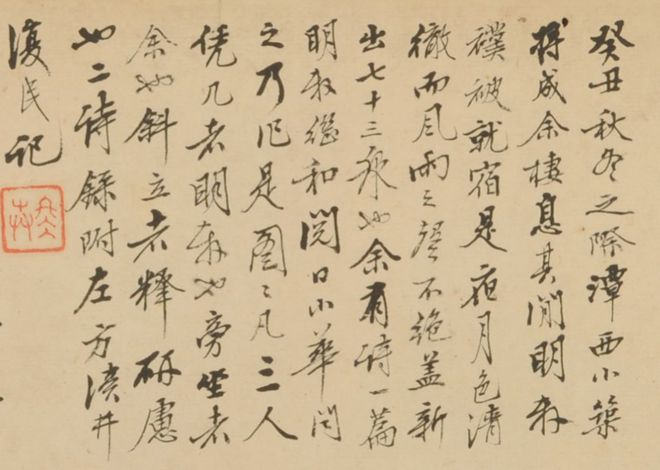 癸丑秋冬之際潭西小築
將成余棲息其間明叔
襆被就宿是夜月色清
徹而風雨之聲不絶盖新
出七十三泉也余有詩一篇
明叔繼和閱日小華閏
之乃作是圖〻凡三人
凭几者明叔也旁坐者
余也斜立者釋研慮
也二詩録附左方漬井
復民記